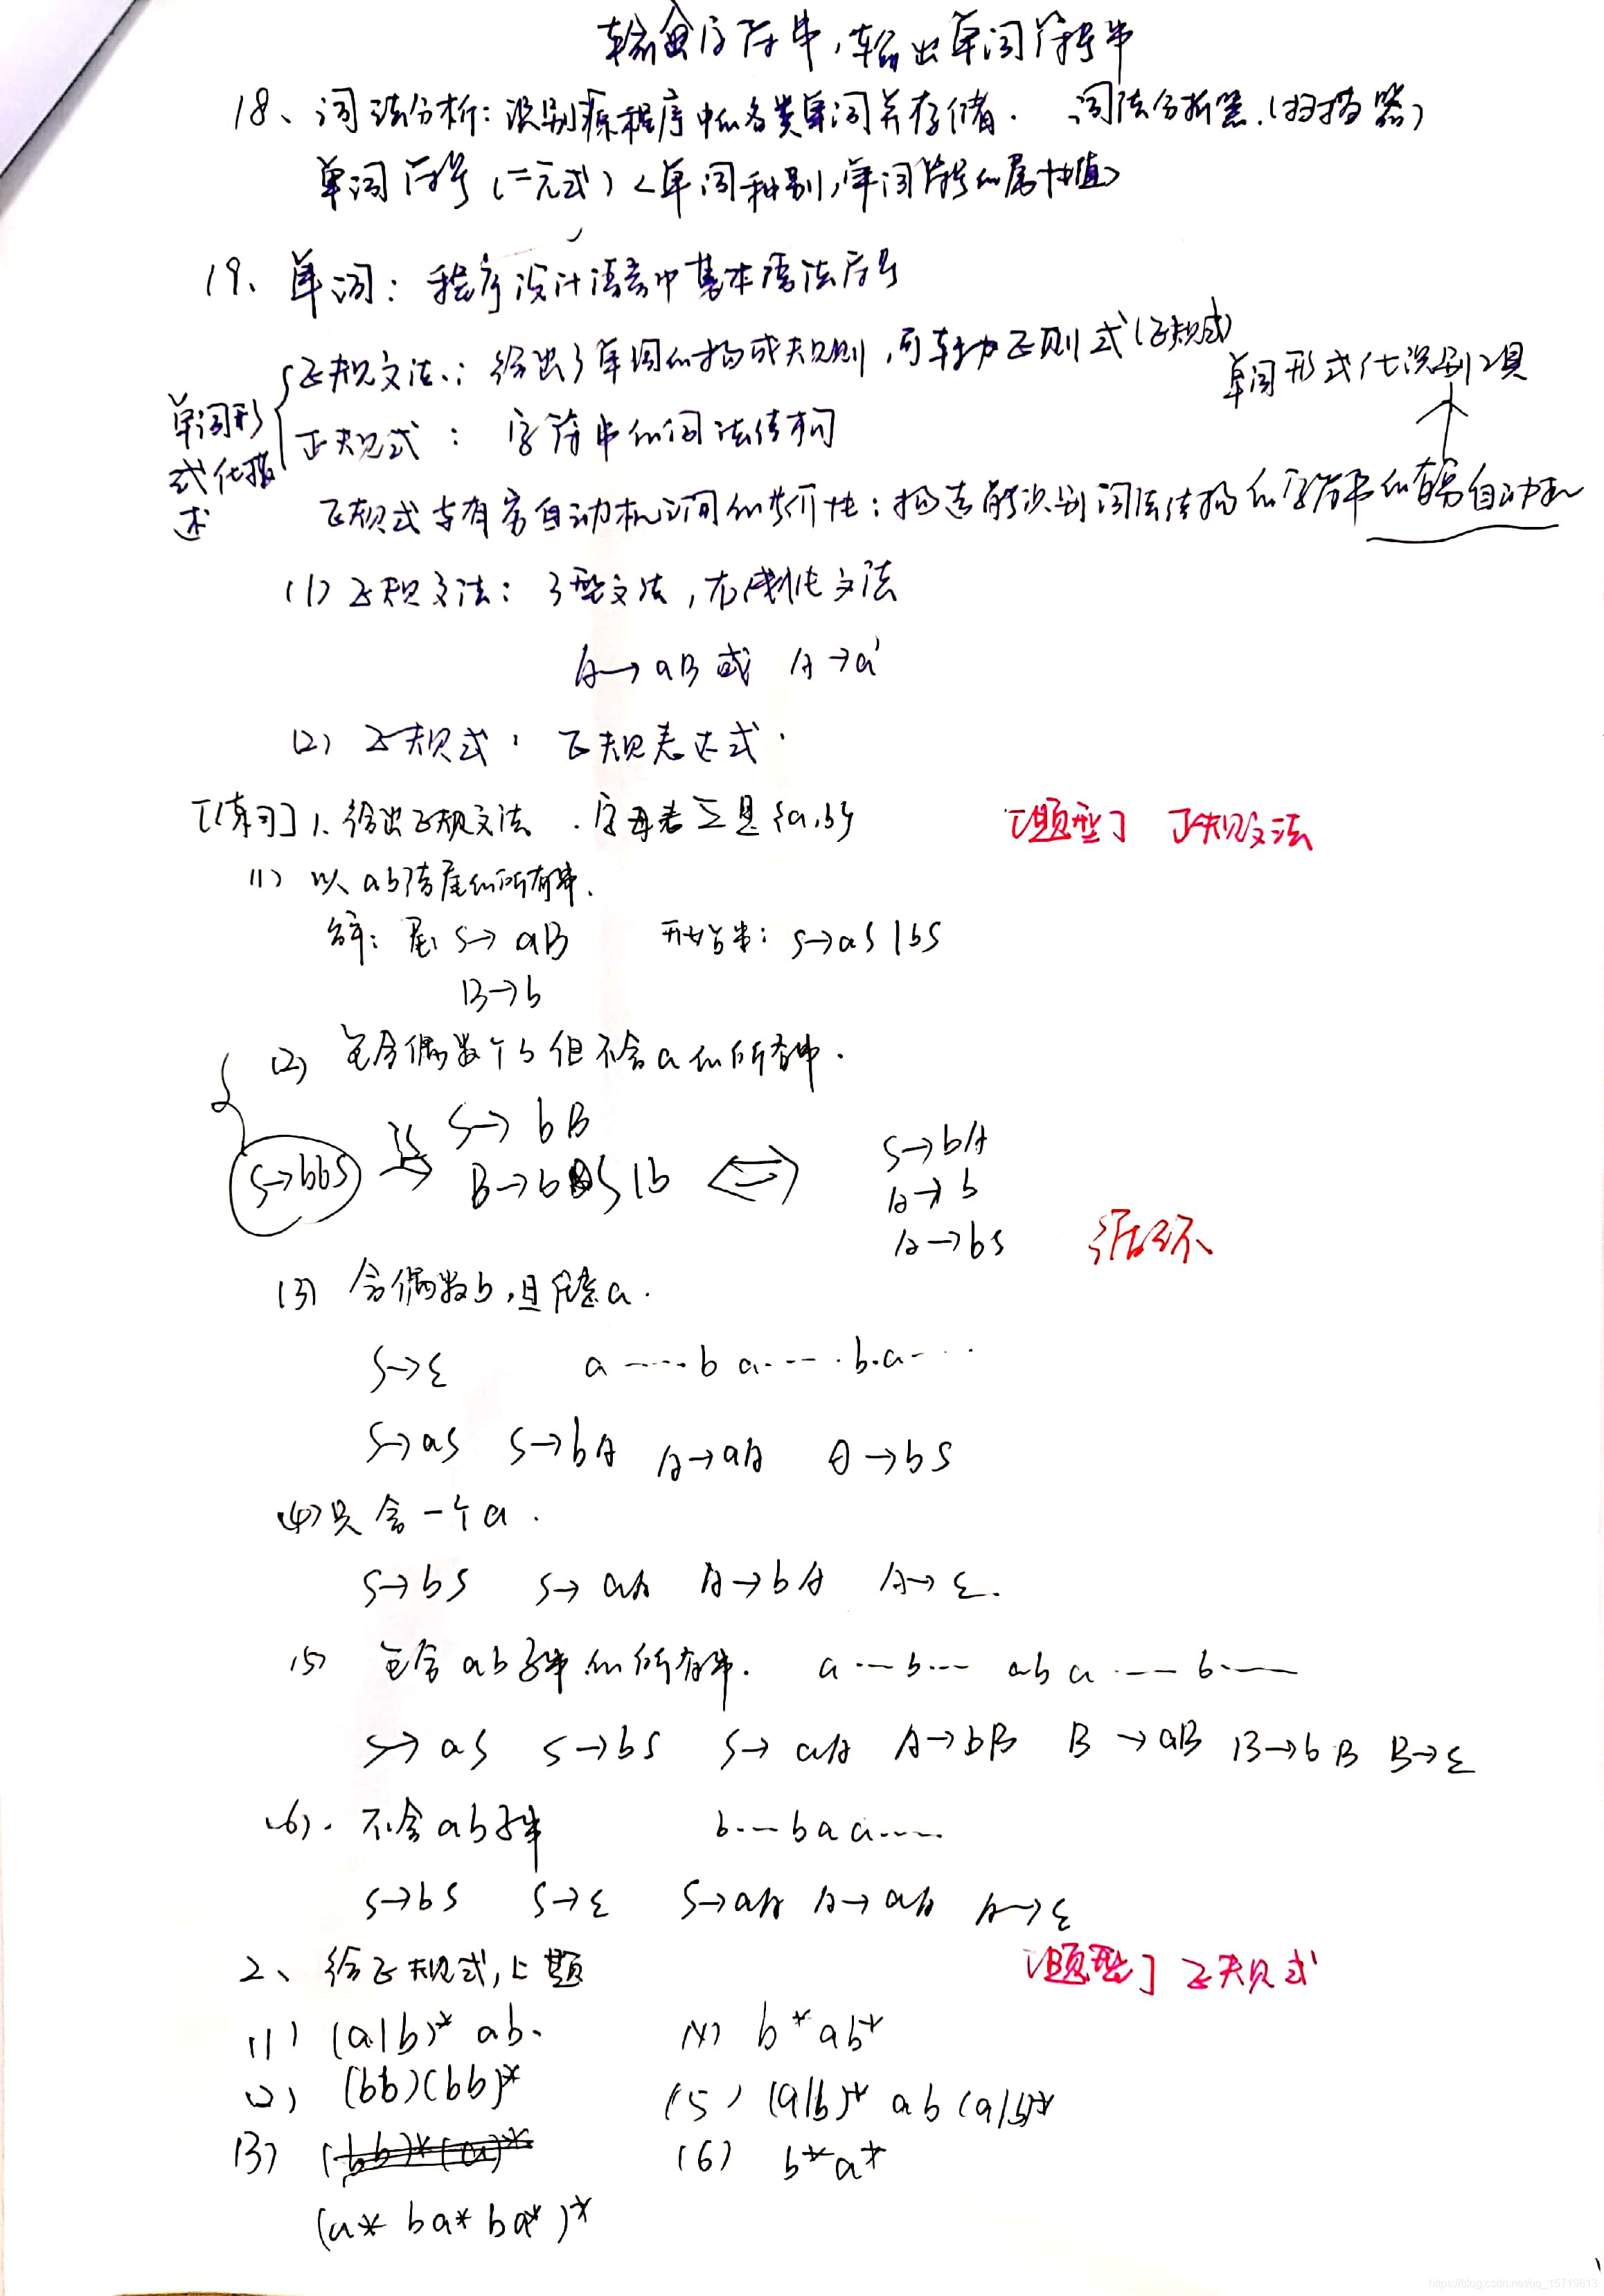 输入字符串,输出单词符号串
18、词法分析:识别源程序中的各类单词并存储. 词法分析器.(扫描器)
单词符号(二元式)<单词种别,单词符号的属性值>
19、单词:程序设计语言中基本语法符号
单词形式化描述
正规文法:给出了单词的构成规则,可转为正则式(正规式)
单词形式化识别工具
正规式:字符串的词法结构
正规式与有穷自动机之间的等价性:构造能识别词法结构的字符串的有穷自动机
(1) 正规文法:3型文法,右线性文法
A→aB 或 A→a
(2) 正规式:正规表达式.
[练习] 1、给出正规文法.字母表Σ是{a,b}
[题型] 正规文法
(1) 以ab结尾的所有串.
解:尾:S→aB 开始串:S→aS|bS
B→b
(2) 包含偶数个b但不含a的所有串.
S→bbS ⇒ S→bB
B→bS|b ⇔ S→bA
A→b
A→bS 循环
(3) 含偶数b,且任意a.
S→ε a-----b a-----b.a-----
S→aS S→bA A→aA A→bS
(4) 只含一个a.
S→bS S→aA A→bA A→ε.
(5) 包含ab子串的所有串. a---b--- ab a---b---
S→aS S→bS S→aA A→bB B→aB B→bB B→ε
(6). 不含ab子串 b---baa-----
S→bS S→ε S→aA A→aA A→ε
2、给正规式,上题 [题型] 正规式
(1) (a|b)* ab. (4) b*ab*
(2) (bb)(bb)* (5) (a|b)* ab (a|b)*
(3) (bb)*(a)* (6) b*a*
(a* ba* ba*)*
https://blog.csdn.net/qq_15719613